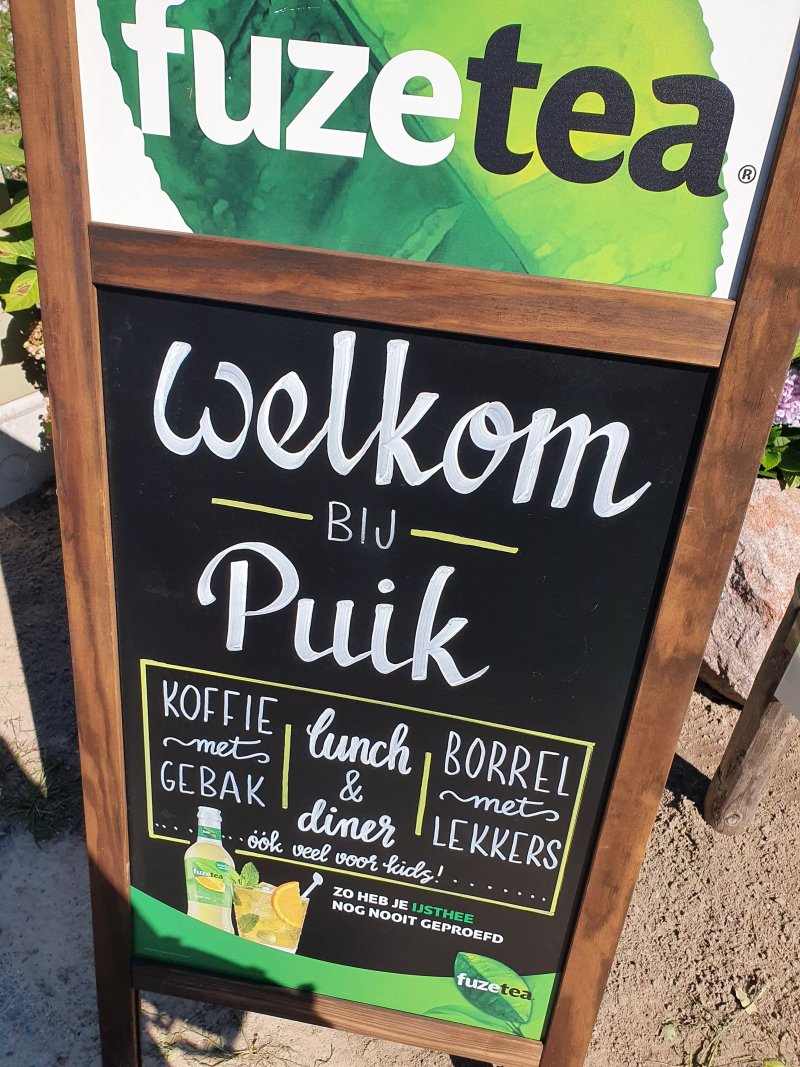 fuzetea®
welkom
BIJ
Puik
KOFFIE
met
GEBAK
lunch
&
diner
BORREL
met
LEKKERS
öök veel voor kids!
fuzetea
ZO HEB JE IJSTHEE
NOG NOOIT GEPROEFD
fuzetea